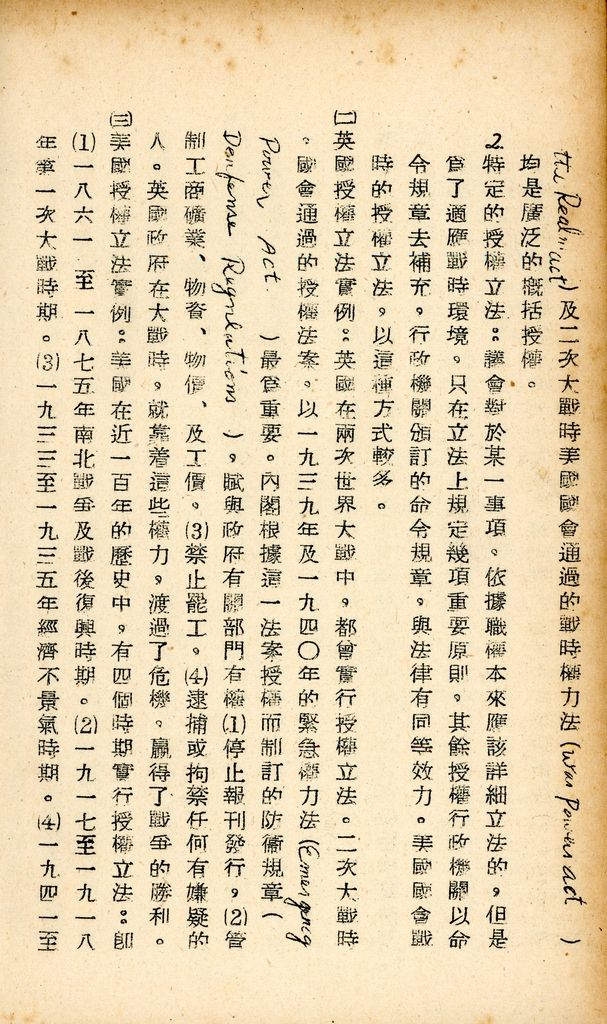 the Realm act）及二次大戰時美國國會通過的戰時權力法（War Powers act）
均是廣泛的概括授權。
2.特定的授權立法：議會對於某一事項，依據職權本來應該詳細立法的，但是
爲了適應戰時環境，只在立法上規定幾項重要原則。其餘授權行政機關以命
令規章去補充，行政機關頒訂的命令規章，與法律有同等效力。美國國會戰
時的授權立法，以這種方式較多。
㈡英國授權立法實例：英國在兩次世界大戰中，都曾實行授權立法。二次大戰時
。國會通過的授權法案，以一九三九年及一九四〇年的緊急權力法（Emergency
Power Act）最爲重要。內閣根據這一法案授權而制訂的防衞規章（
Denfense Rugulations），賦與政府有關部門有權⑴停止報刊發行，⑵管
制工商礦業、物資、物價、及工價。⑶禁止罷工。⑷逮捕或拘禁任何有嫌疑的
人。英國政府在大戰時，就靠着這些權力，渡過了危機，贏得了戰爭的勝利。
㈢美國授權立法實例：美國在近一百年的歷史中，有四個時期實行授權立法：卽
⑴一八六一至一八七五年南北戰爭及戰後復興時期。⑵一九一七至一九一八
年第一次大戰時期。⑶一九三三至一九三五年經濟不景氣時期。⑷一九四一至